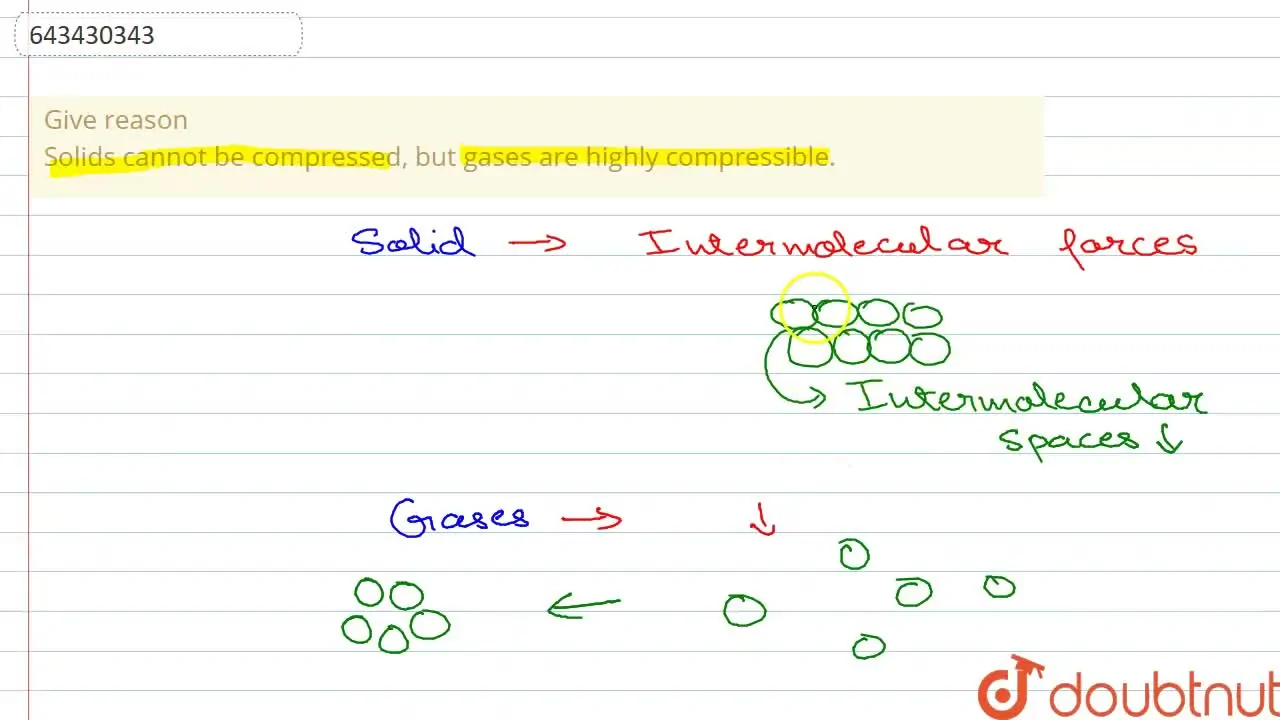 643430343
Give reason
Solids cannot be compressed, but gases are highly compressible.
Solid → Intermolecular forces
Intermolecular
spaces ↓
Gases → ↓
doubtnut